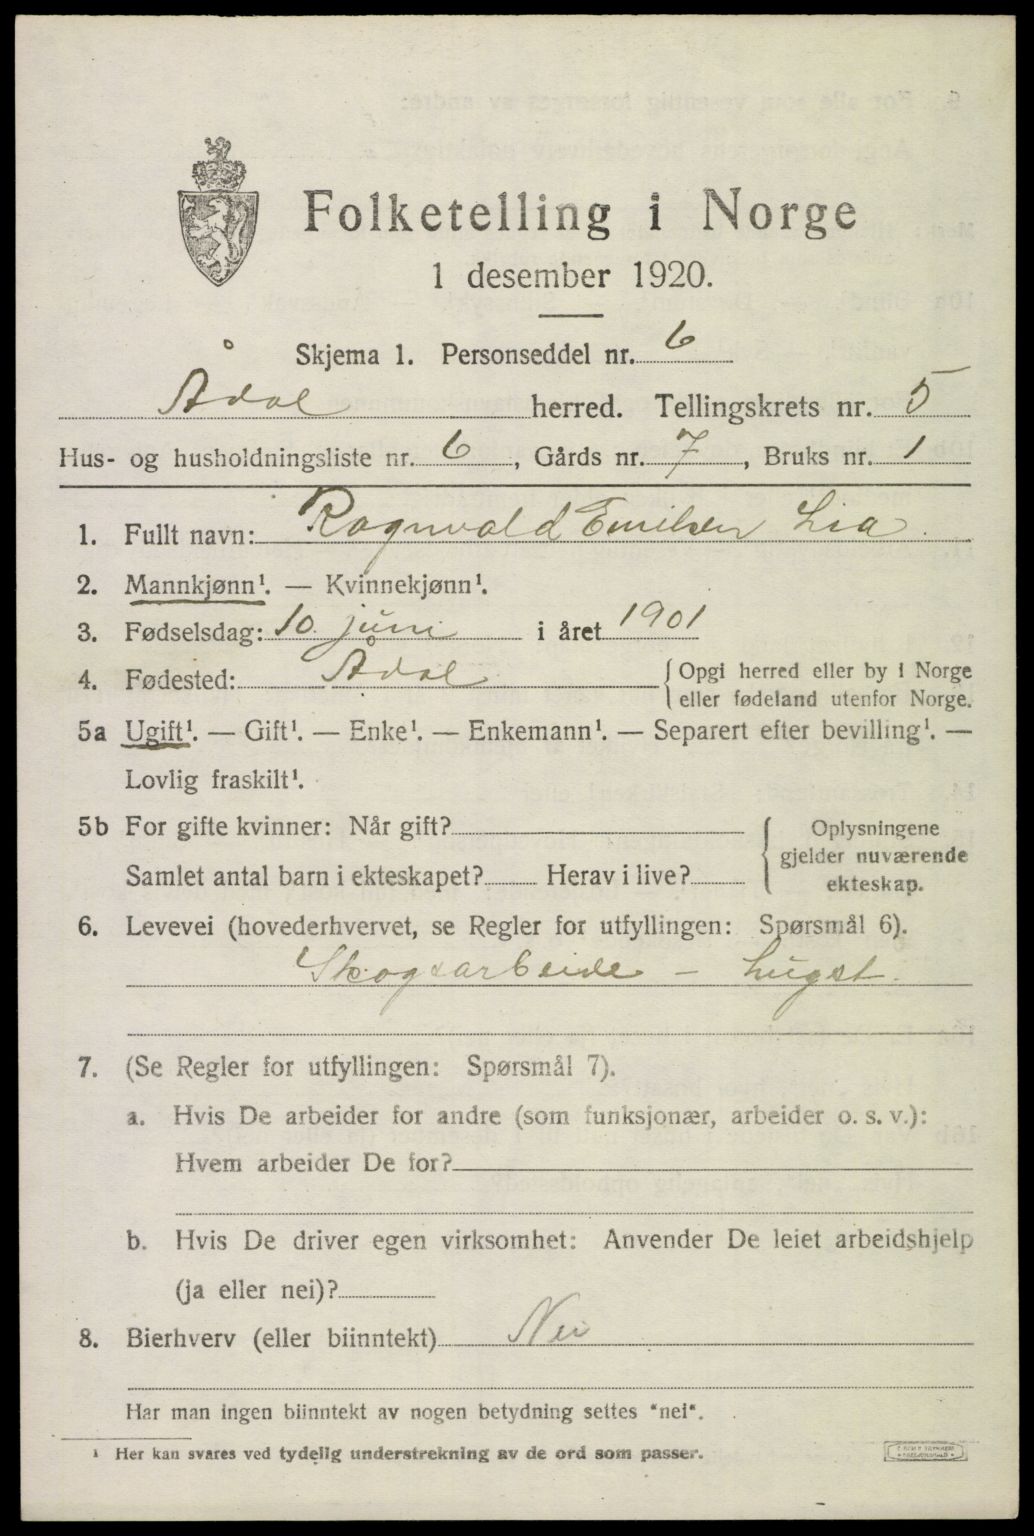 Folketelling i Norge
1 desember 1920.
Skjema 1. Personseddel nr. 6
Ådal herred. Tellingskrets nr. 5
Hus- og husholdningsliste nr. 6, Gårds nr. 7, Bruks nr. 1
1. Fullt navn: Ragnvald Emilsen Lia
2. Mannkjønn¹. — Kvinnekjønn¹.
3. Fødselsdag: 10. juni i året 1901
4. Fødested: Ådal
{ Opgi herred eller by i Norge
eller fødeland utenfor Norge.
5a Ugift¹. — Gift¹. — Enke¹. — Enkemann¹. — Separert efter bevilling¹. —
Lovlig fraskilt¹.
5b For gifte kvinner: Når gift?
Samlet antal barn i ekteskapet? Herav i live?
{ Oplysningene
gjelder nuværende
ekteskap.
6. Levevei (hovederhvervet, se Regler for utfyllingen: Spørsmål 6).
Skogsarbeide –
7. (Se Regler for utfyllingen: Spørsmål 7).
a. Hvis De arbeider for andre (som funksjonær, arbeider o. s. v.):
Hvem arbeider De for?
b. Hvis De driver egen virksomhet: Anvender De leiet arbeidshjelp
(ja eller nei)?
8. Bierhverv (eller biinntekt) Nei
Har man ingen biinntekt av nogen betydning settes "nei".
¹ Her kan svares ved tydelig understrekning av de ord som passer.